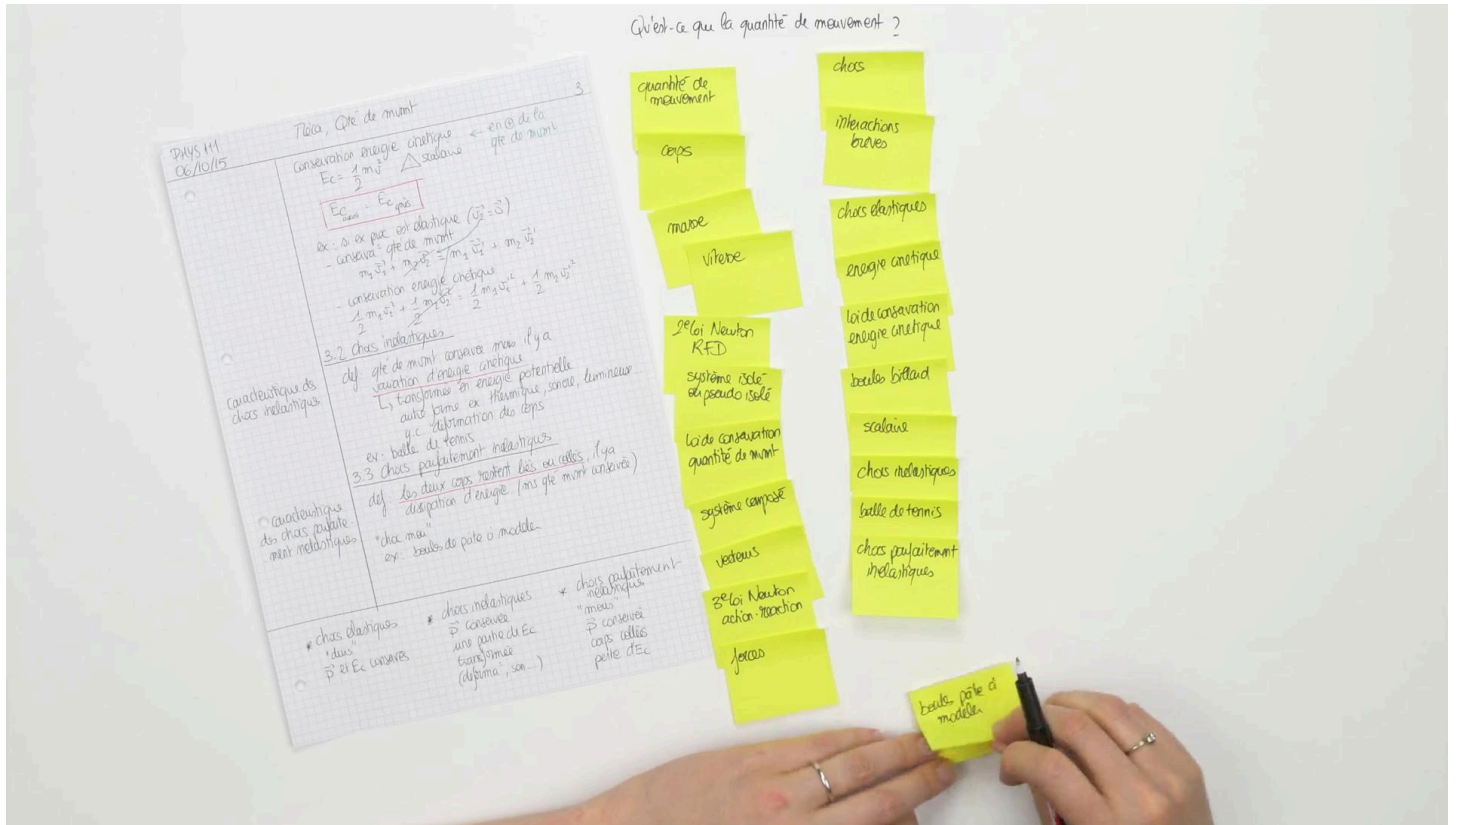 Qu'est-ce que la quantité de mouvement ?
PHYS 111
06/10/15
Méca, Qté de mvmt
3
conservation énergie cinétique
← en ⊕ de la
qté de mvmt
Ec = 1/2 mv² △ scalaire
Ec avant = Ec après
ex : si ex préc est élastique (v⃗2 = 0⃗)
- conserva° qté de mvmt
m1 v⃗1 + m2 v⃗2 = m1 v⃗1' + m2 v⃗2'
- conservation énergie cinétique
1/2 m1 v1² + 1/2 m2 v2² = 1/2 m1 v1'² + 1/2 m2 v2'²
3.2 Chocs inélastiques
caractéristique des
chocs inélastiques
def : qté de mvmt conservée mais il y a
variation d'énergie cinétique
↳ transformée en énergie potentielle
autre forme ex thermique, sonore, lumineuse...
déformation des corps
ex : balle de tennis
3.3 Chocs parfaitement inélastiques
caractéristique
des chocs parfaite-
ment inélastiques
def : les deux corps restent liés ou collés, il y a
dissipation d'énergie (ms qté mvmt conservée)
"choc mou"
ex : boules de pâte à modeler
* chocs élastiques
"durs"
p⃗ et Ec conservés
* chocs inélastiques
p⃗ conservée
une partie de Ec
transformée
(déforma°, son...)
* chocs parfaitement
inélastiques
"mous"
p⃗ conservée
corps collés
perte d'Ec
quantité de
mouvement
corps
masse
vitesse
2e loi Newton
RFD
système isolé
ou pseudo isolé
loi de conservation
quantité de mvmt
système composé
vecteurs
3e loi Newton
action-réaction
forces
chocs
interactions
brèves
chocs élastiques
énergie cinétique
loi de conservation
énergie cinétique
boules billard
scalaire
chocs inélastiques
balle de tennis
chocs parfaitement
inélastiques
boules pâte à
modeler